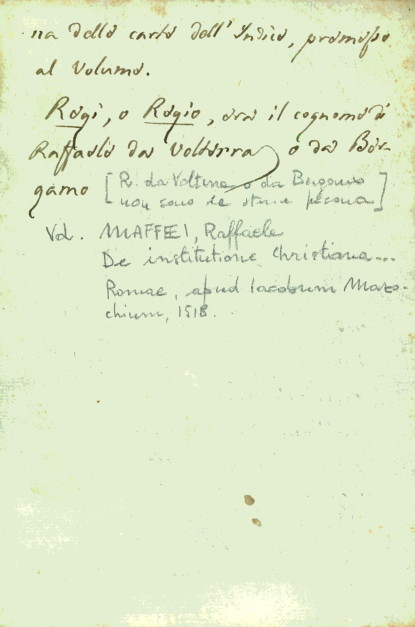 na della carta dell'Indice, premessa
al volume.
Regi, o Regio, era il cognome di
Raffaele da Volterra, o da Ber-
gamo [R. da Volterra e da Bergamo
non sono la stessa persona]
Vd. MAFFEI, Raffaele
De institutione Christiana...
Romae, apud Iacobum Mazo-
chium, 1518.